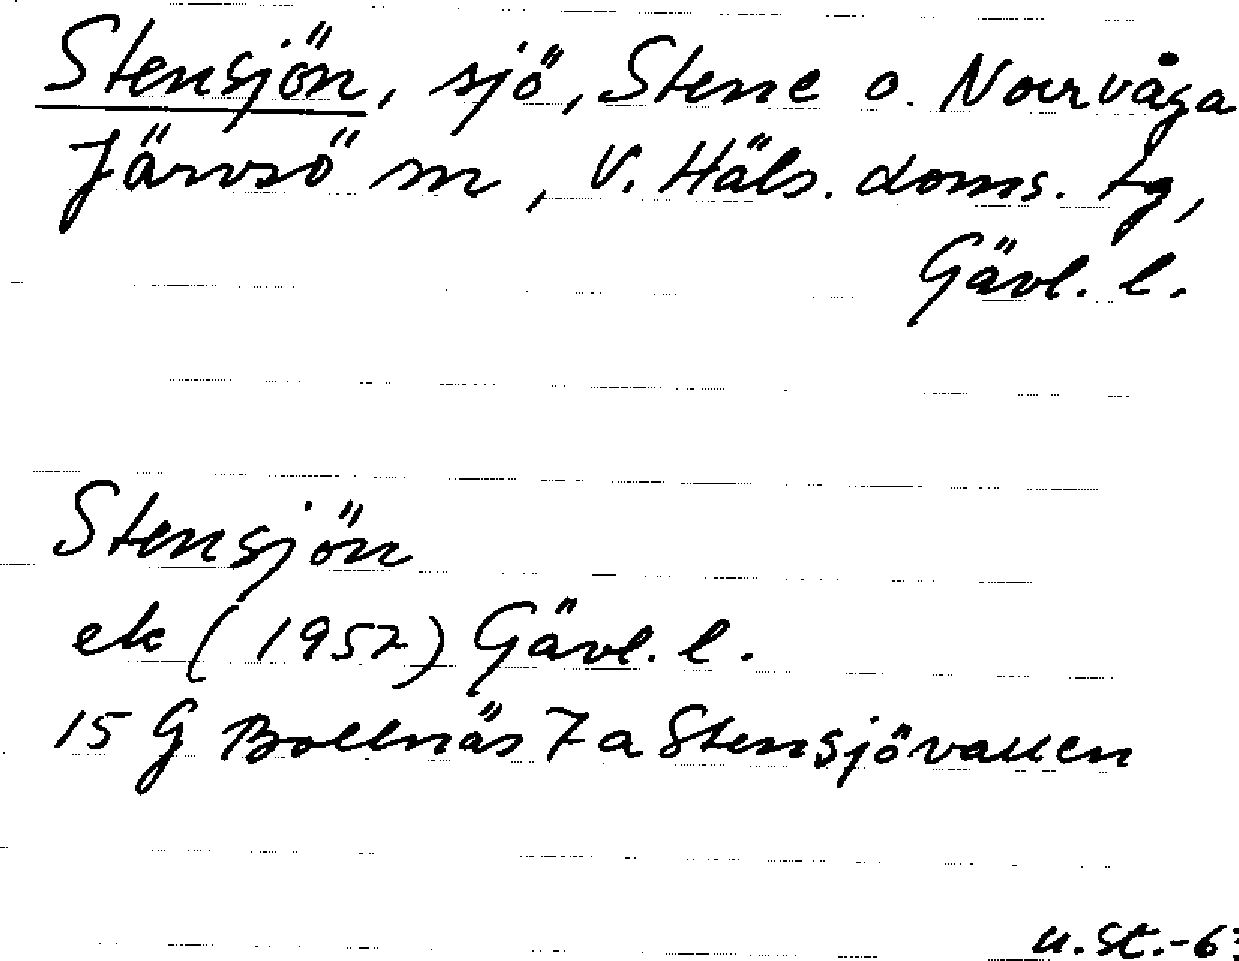 Stensjön, sjö, Stene o. Norrvåga
Järvsö sn, V. Häls. doms. tg,
Gävl. l.
Stensjön
ek (1957) Gävl. l.
15 G Bollnäs 7 a Stensjövallen
u.St.-63